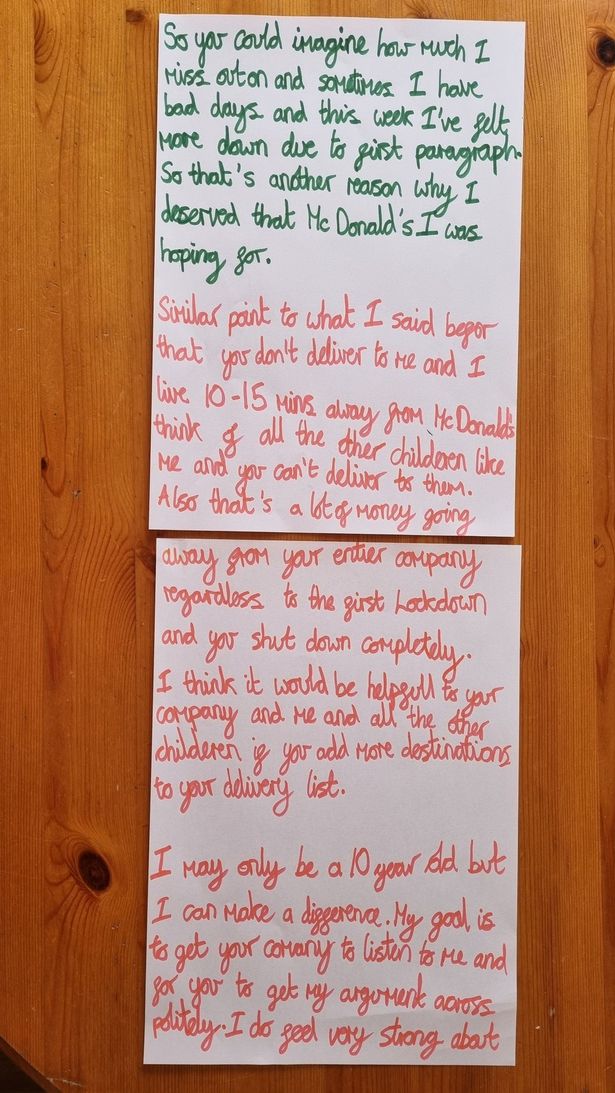 So you could imagine how much I
miss out on and sometimes I have
bad days and this week I've felt
more down due to first paragraph.
So that's another reason why I
deserved that Mc Donald's I was
hoping for.
Similar point to what I said befor
that you don't deliver to me and I
live 10-15 mins away from Mc Donald's
think of all the other childeren like
me and you can't deliver to them.
Also that's a lot of money going
away from your entier company
regardless to the first Lockdown
and you shut down completely.
I think it would be helpfull to your
company and me and all the other
childeren if you add more destinations
to your delivery list.
I may only be a 10 year old but
I can make a difference. My goal is
to get your comany to listen to me and
for you to get my argument across
politely. I do feel very strong about